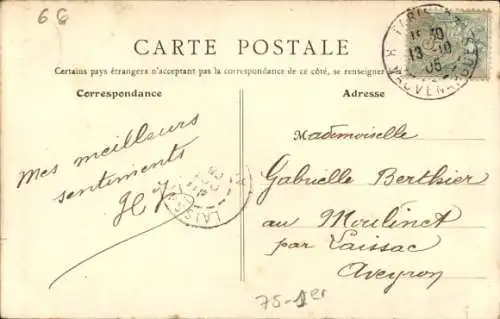 66
CARTE POSTALE
Certains pays étrangers n'acceptant pas la correspondance de ce côté, se renseigner
Correspondance
Adresse
Mes meilleurs
sentiments
Mademoiselle
Gabrielle Berthier
au Moulinet
par Laissac
Aveyron
PARIS
15 30
13 -10
05
R. VAUVENARGUES
LAISSAC
75-1er